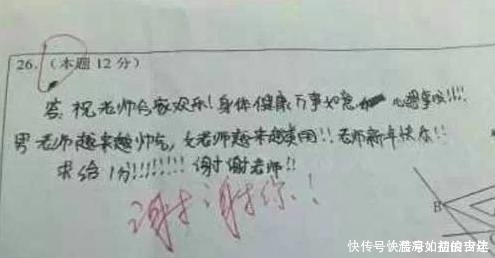 26.（本题12分）
答：祝老师合家欢乐！身体健康 万事如意 心想事成!!!!
男老师越来越帅气，女老师越来越美丽!!老师新年快乐!!
求给1分!!!!!!!!谢谢老师!!
谢谢你!!
B
快传号